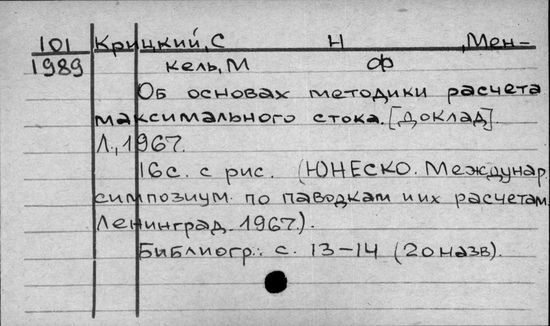 101 Крицкий, С Н , Мен-
1989 кель, М Ф
Об основах методики расчета
максимального стока. [Доклад]
Л., 1967.
16с. с рис. (ЮНЕСКО. Междунар
симпозиум по паводкам и их расчетам.
Ленинград. 1967.).
Библиогр.: с. 13-14 (20 назв).